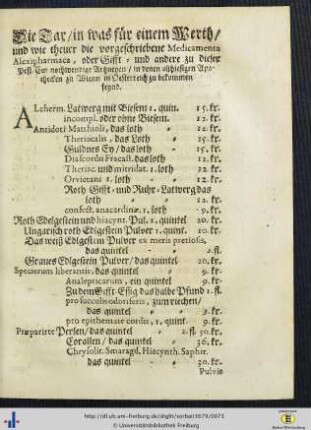 Die Tax / in was für einem Werth /
und wie theuer die vorgeschriebene Medicamenta
Alexipharmaca, oder Gifft- und andere zu dieser
Pest-Cur nothwendige Artzneyen / in denen allhiesigen Apo-
thecken zu Wienn in Oesterreich zu bekommen
seynd.
Alcherm. Latwerg mit Biesem 1. quin. 15. kr.
incompl. oder ohne Biesem. 12. kr.
Antidoti Matthioli, das loth 12. kr.
Theriacalis, das Loth 15. kr.
Guldnes Ey / das loth 15. kr.
Diascordii Fracast. das loth 12. kr.
Theriac und mitridat. 1. loth 12. kr.
Orvietani 1. loth 12. kr.
Roth Gifft- und Ruhr-Latwerg das
loth 12. kr.
confect. anacardinæ. 1. loth 9. kr.
Roth Edelgestein und hiacynt. Pul. 1. quintel 20. kr.
Ungarisch roth Edlgestein Pulver 1. quint. 10. kr.
Das weiß Edlgestein Pulver ex meris pretiosis,
das quintel 2. fl.
Graues Edlgestein Pulver / das quintel 20. kr.
Specierum liberantis, das quintel 9. kr.
Analepticarum, ein quintel 9. kr.
Zu dem Gifft-Essig das halbe Pfund 1. fl.
pro succulis odoriferis, zum riechen /
das quintel 9. kr.
pro epithemate cordis, 1. quint. 9. kr.
Præparirte Perlen / das quintel 1. fl. 30. kr.
Corallen / das quintel 36. kr.
Chrysolit. Smaragd. Hiacynth. Saphir.
das quintel 30. kr.
Pulvis
http://dl.ub.uni-freiburg.de/diglit/sorbait1679/0071
© Universitätsbibliothek Freiburg